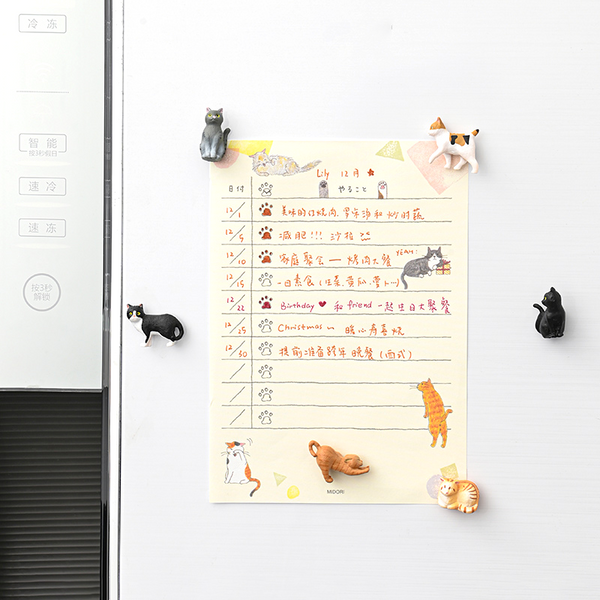 冷 冻
智能
按3秒/假日
速 冷
速 冻
按3秒
解锁
Lily 12月
日付 やること
12/1 美味的红烧肉、罗宋汤和炒时蔬
12/5 减肥!!! 沙拉
12/10 家庭聚会 — 烤肉大餐 YEAH!
12/15 一日素食(生菜、黄瓜、萝卜…)
12/22 Birthday ♥ 和 friend 一起生日大聚餐
12/25 Christmas ~ 暖心寿喜烧
12/30 提前准备跨年晚餐(西式)
MIDORI